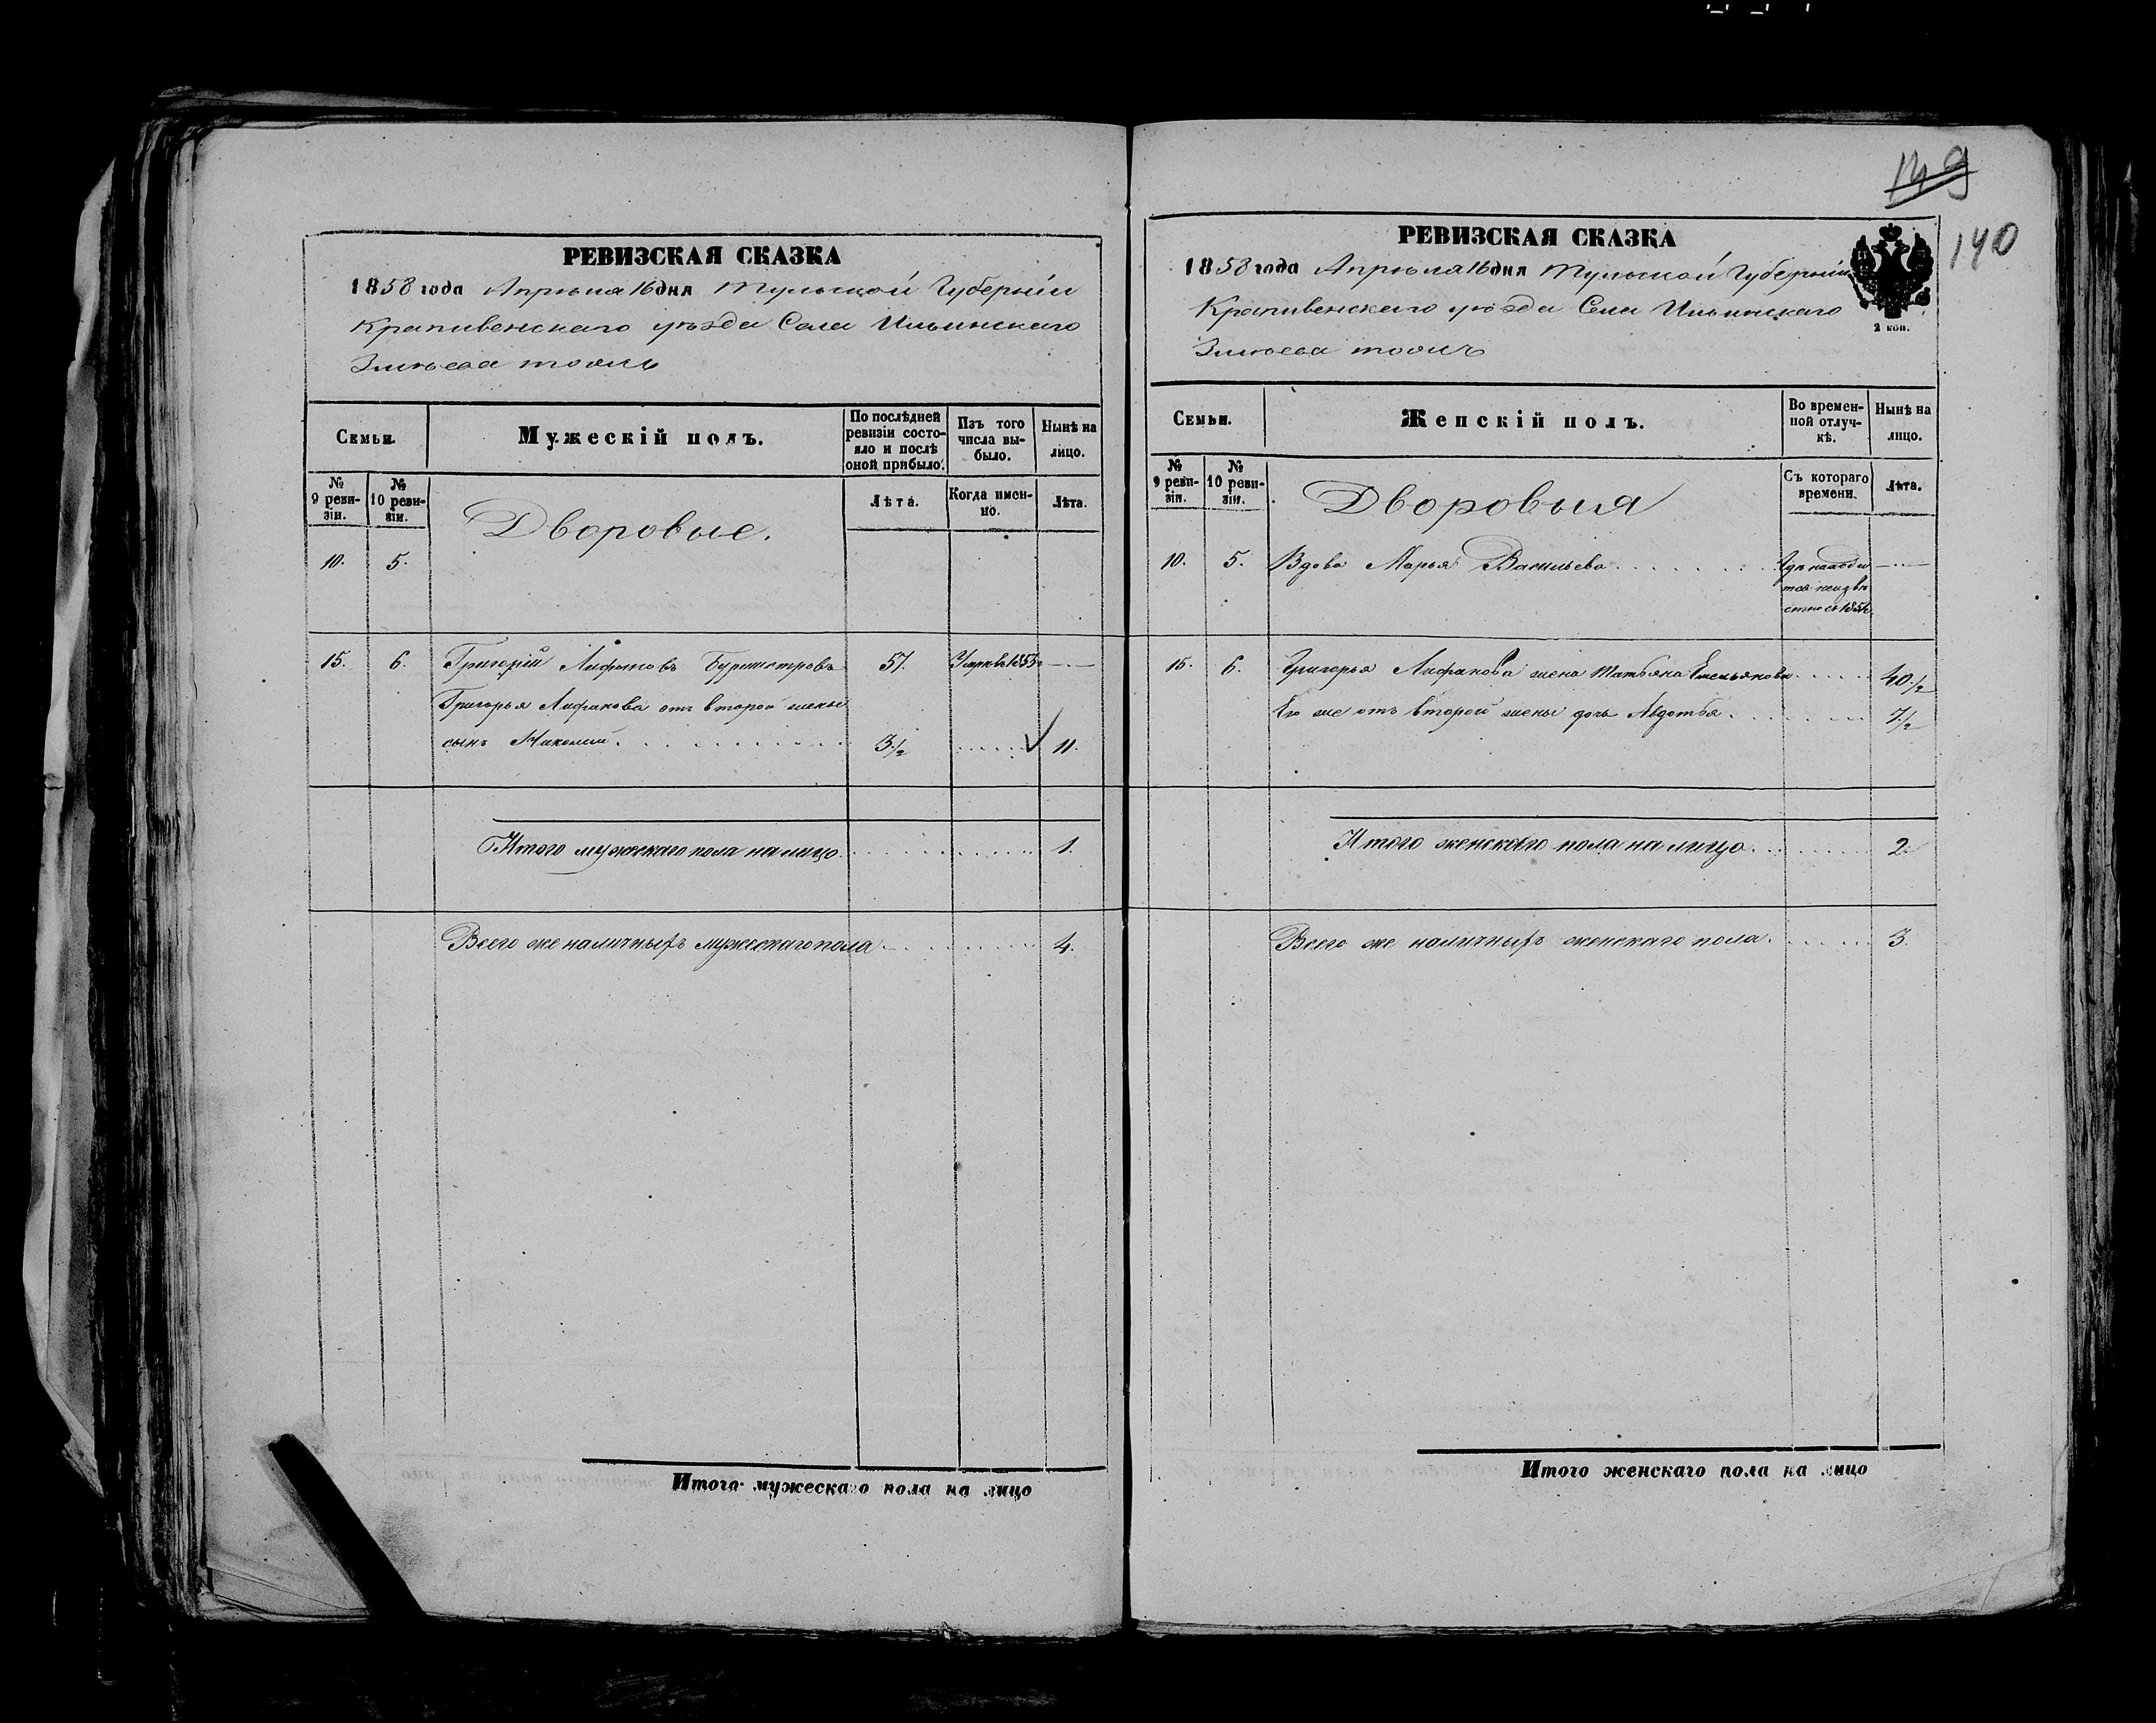 149
140
РЕВИЗСКАЯ СКАЗКА
1858 года Апрѣля 16 дня Тульской Губерніи
Крапивенскаго уѣзда Села Ильинскаго
Змѣева тожъ
Семьи.
Мужескій полъ.
По послѣдней ревизіи состояло и послѣ оной прибыло.
Изъ того числа выбыло.
Нынѣ на лицо.
№ 9 ревизіи.
№ 10 ревизіи.
Дворовые.
Лѣта.
Когда именно.
Лѣта.
10. 5.
15. 6. Григорій Бурмистровъ 57. 1855
Григорья отъ второй жены
сынъ Николай 3 1/2 11.
Итого мужескаго пола на лицо 1.
Всего же наличныхъ мужескаго пола 4.
Итого мужескаго пола на лицо
РЕВИЗСКАЯ СКАЗКА
1858 года Апрѣля 16 дня Тульской Губерніи
Крапивенскаго уѣзда Села Ильинскаго
Змѣева тожъ
2 коп.
Семьи.
Женскій полъ.
Во временной отлучкѣ.
Нынѣ на лицо.
№ 9 ревизіи.
№ 10 ревизіи.
Дворовыя
Съ котораго времени.
Лѣта.
10. 5. Вдова Марья Васильева
15. 6. Григорья жена Татьяна Емельянова 40 1/2
Его же отъ второй жены дочь Авдотья 7 1/2
Итого женскаго пола на лицо 2
Всего же наличныхъ женскаго пола 3.
Итого женскаго пола на лицо